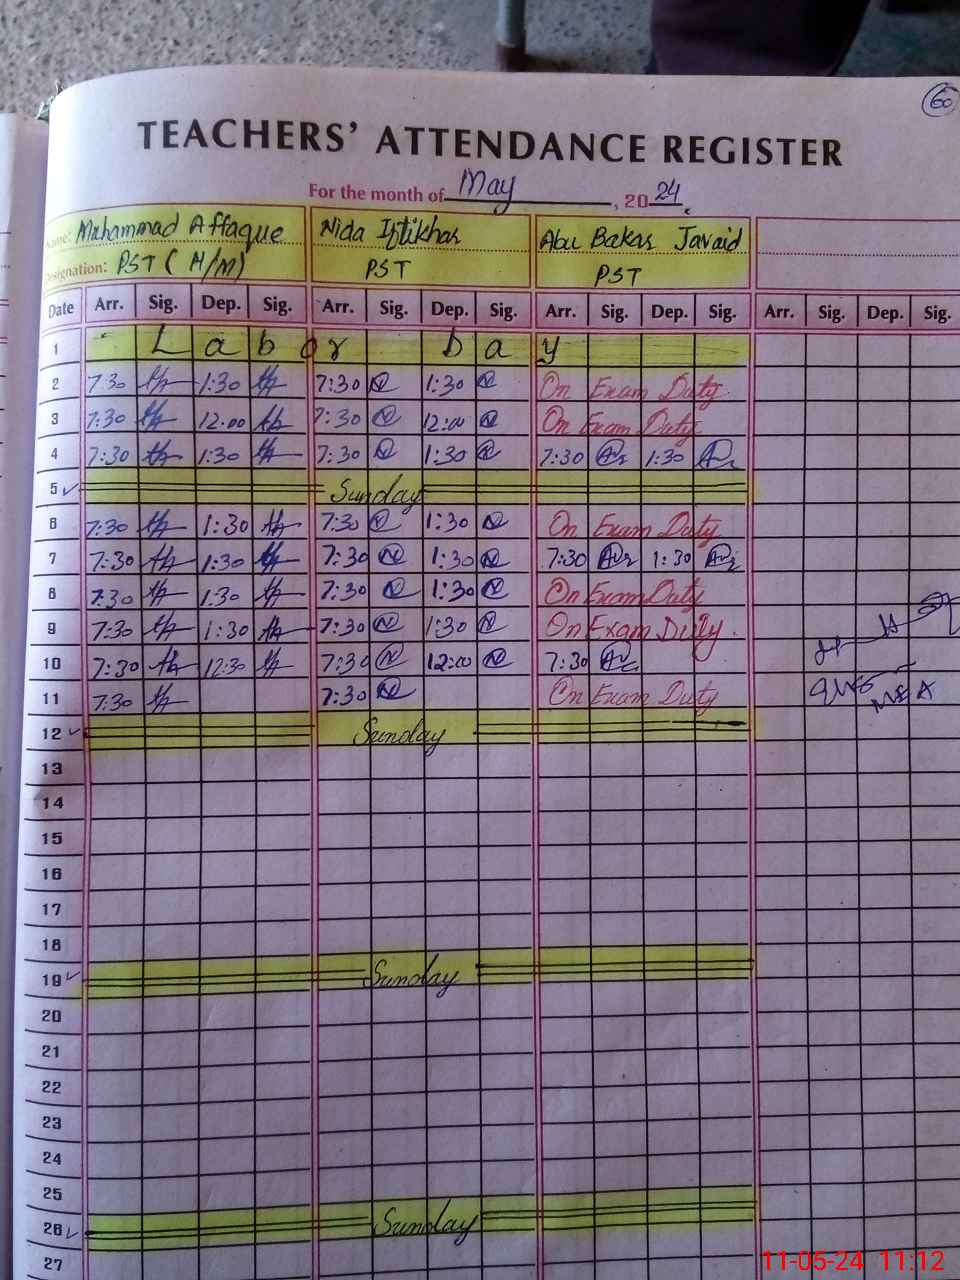 60
TEACHERS' ATTENDANCE REGISTER
For the month of May, 2024.
Name: Muhammad Affaque Nida Iftikhar Abu Bakar Javaid
Designation: PST (H/M) PST PST
Date Arr. Sig. Dep. Sig. Arr. Sig. Dep. Sig. Arr. Sig. Dep. Sig. Arr. Sig. Dep. Sig.
1 Labor Day
2 7:30 1:30 7:30 1:30 On Exam Duty
3 7:30 12:00 7:30 12:00 On Exam Duty
4 7:30 1:30 7:30 1:30 7:30 1:30
5 Sunday
6 7:30 1:30 7:30 1:30 On Exam Duty
7 7:30 1:30 7:30 1:30 7:30 1:30
8 7:30 1:30 7:30 1:30 On Exam Duty
9 7:30 1:30 7:30 1:30 On Exam Duty.
10 7:30 12:30 7:30 12:00 7:30
11 7:30 7:30 On Exam Duty
12 Sunday
13
14
15
16
17
18
19 Sunday
20
21
22
23
24
25
26 Sunday
27
11-05-24 11:12